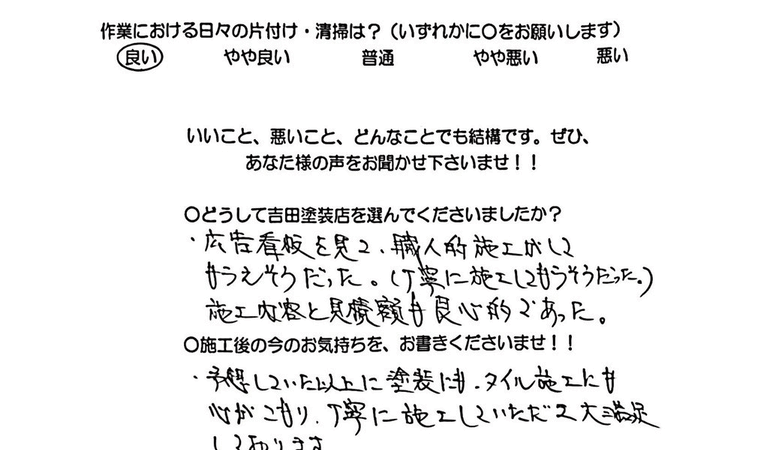 作業における日々の片付け・清掃は？（いずれかに〇をお願いします）
良い　やや良い　普通　やや悪い　悪い
いいこと、悪いこと、どんなことでも結構です。ぜひ、
あなた様の声をお聞かせ下さいませ！！
〇どうして吉田塗装店を選んでくださいましたか？
・広告看板を見て、職人的施工がして
もらえそうだった。（丁寧に施工してもらうそうだった。）
施工内容と見積額も良心的であった。
〇施工後の今のお気持ちを、お書きくださいませ！！
・予想していた以上に塗装にも、タイル施工にも
心がこもり、丁寧に施工していただき大満足
しております